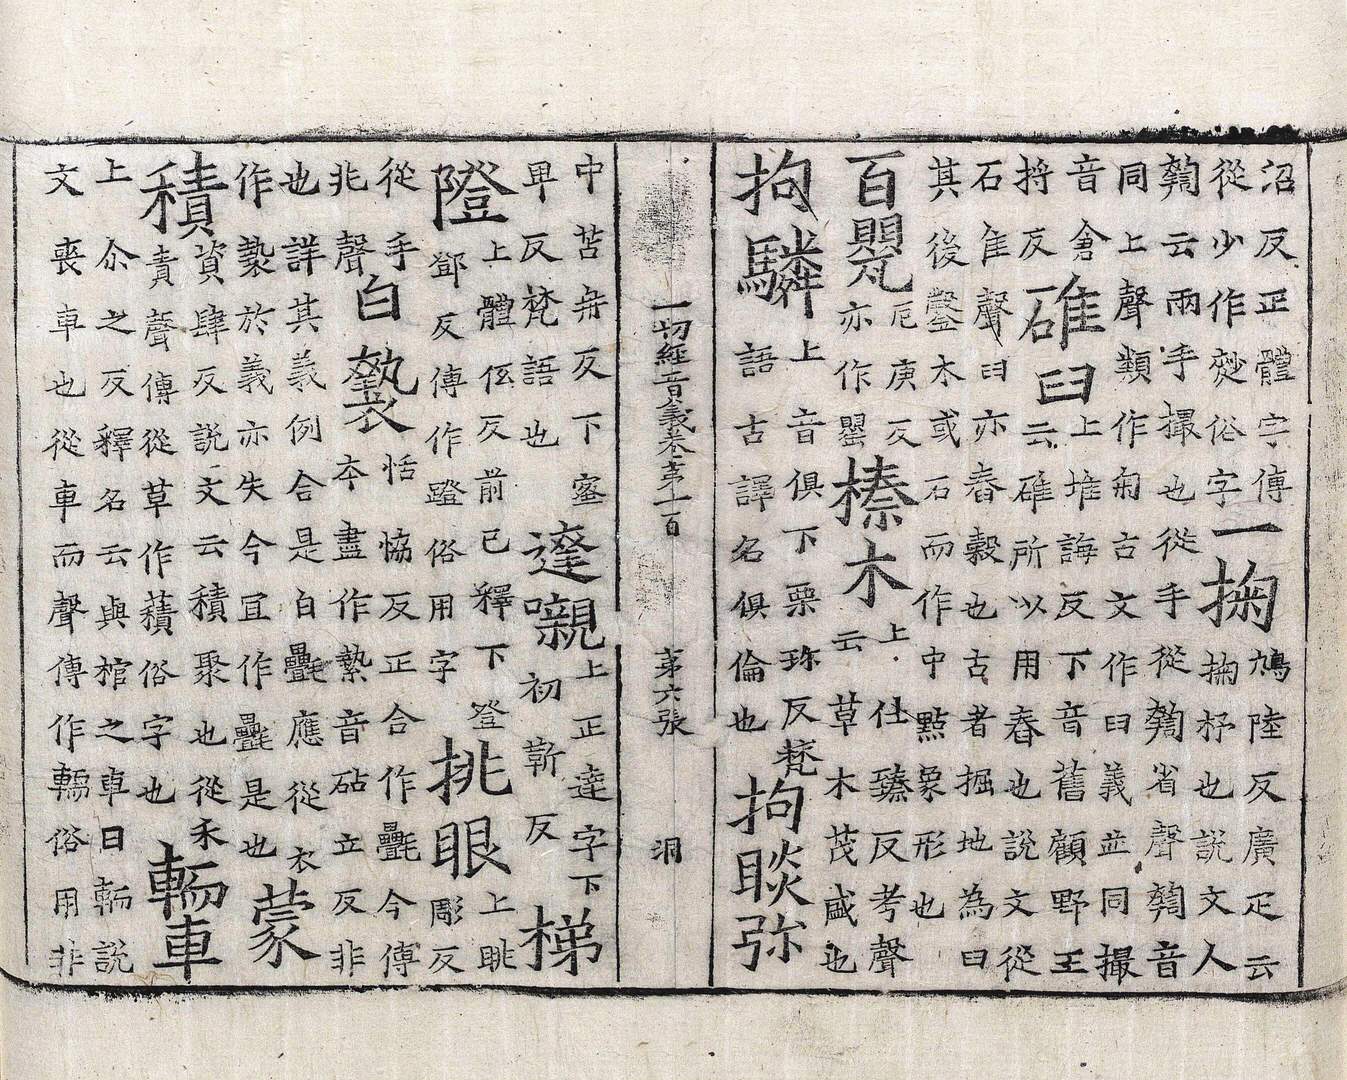 沼反正體字傳
從少作㷅俗字
一掬
鳩陸反廣疋云
掬抒也說文人
云兩手撮也從手從省聲音
同上聲類作匊古文作臼義並同撮
音倉
捋反
碓臼
上堆誨反下音舊顧野王
云碓所以用舂也說文從
石隹聲臼亦舂穀也古者掘地為臼
其後鑿木或石而作中點象形也
百甖
厄庚反
亦作罌
榛木
上仕臻反考聲
云草木茂盛也
拘驎
上音俱下栗珍反梵
語古譯名俱倫也
拘睒弥
一切經音義卷第一百 第六張 洞
中苫冉反下蜜
卑反梵語也
達嚫
上正達字下
初靳反
梯
隥
上體伍反前已釋下登
鄧反傳作蹬俗用字
挑眼
上眺
彫反
從手
兆聲
白褺
恬協反正合作㲲今傳
本盡作縶音砧立反非
也詳其義例合是白㲲應從衣
作褺於義亦失今冝作㲲是也
蒙
積
資肆反說文云積聚也從禾
責聲傳從草作蕦俗字也
轜車
上尒之反釋名云輿棺之車曰轜說
文喪車也從車而聲傳作轜俗用非